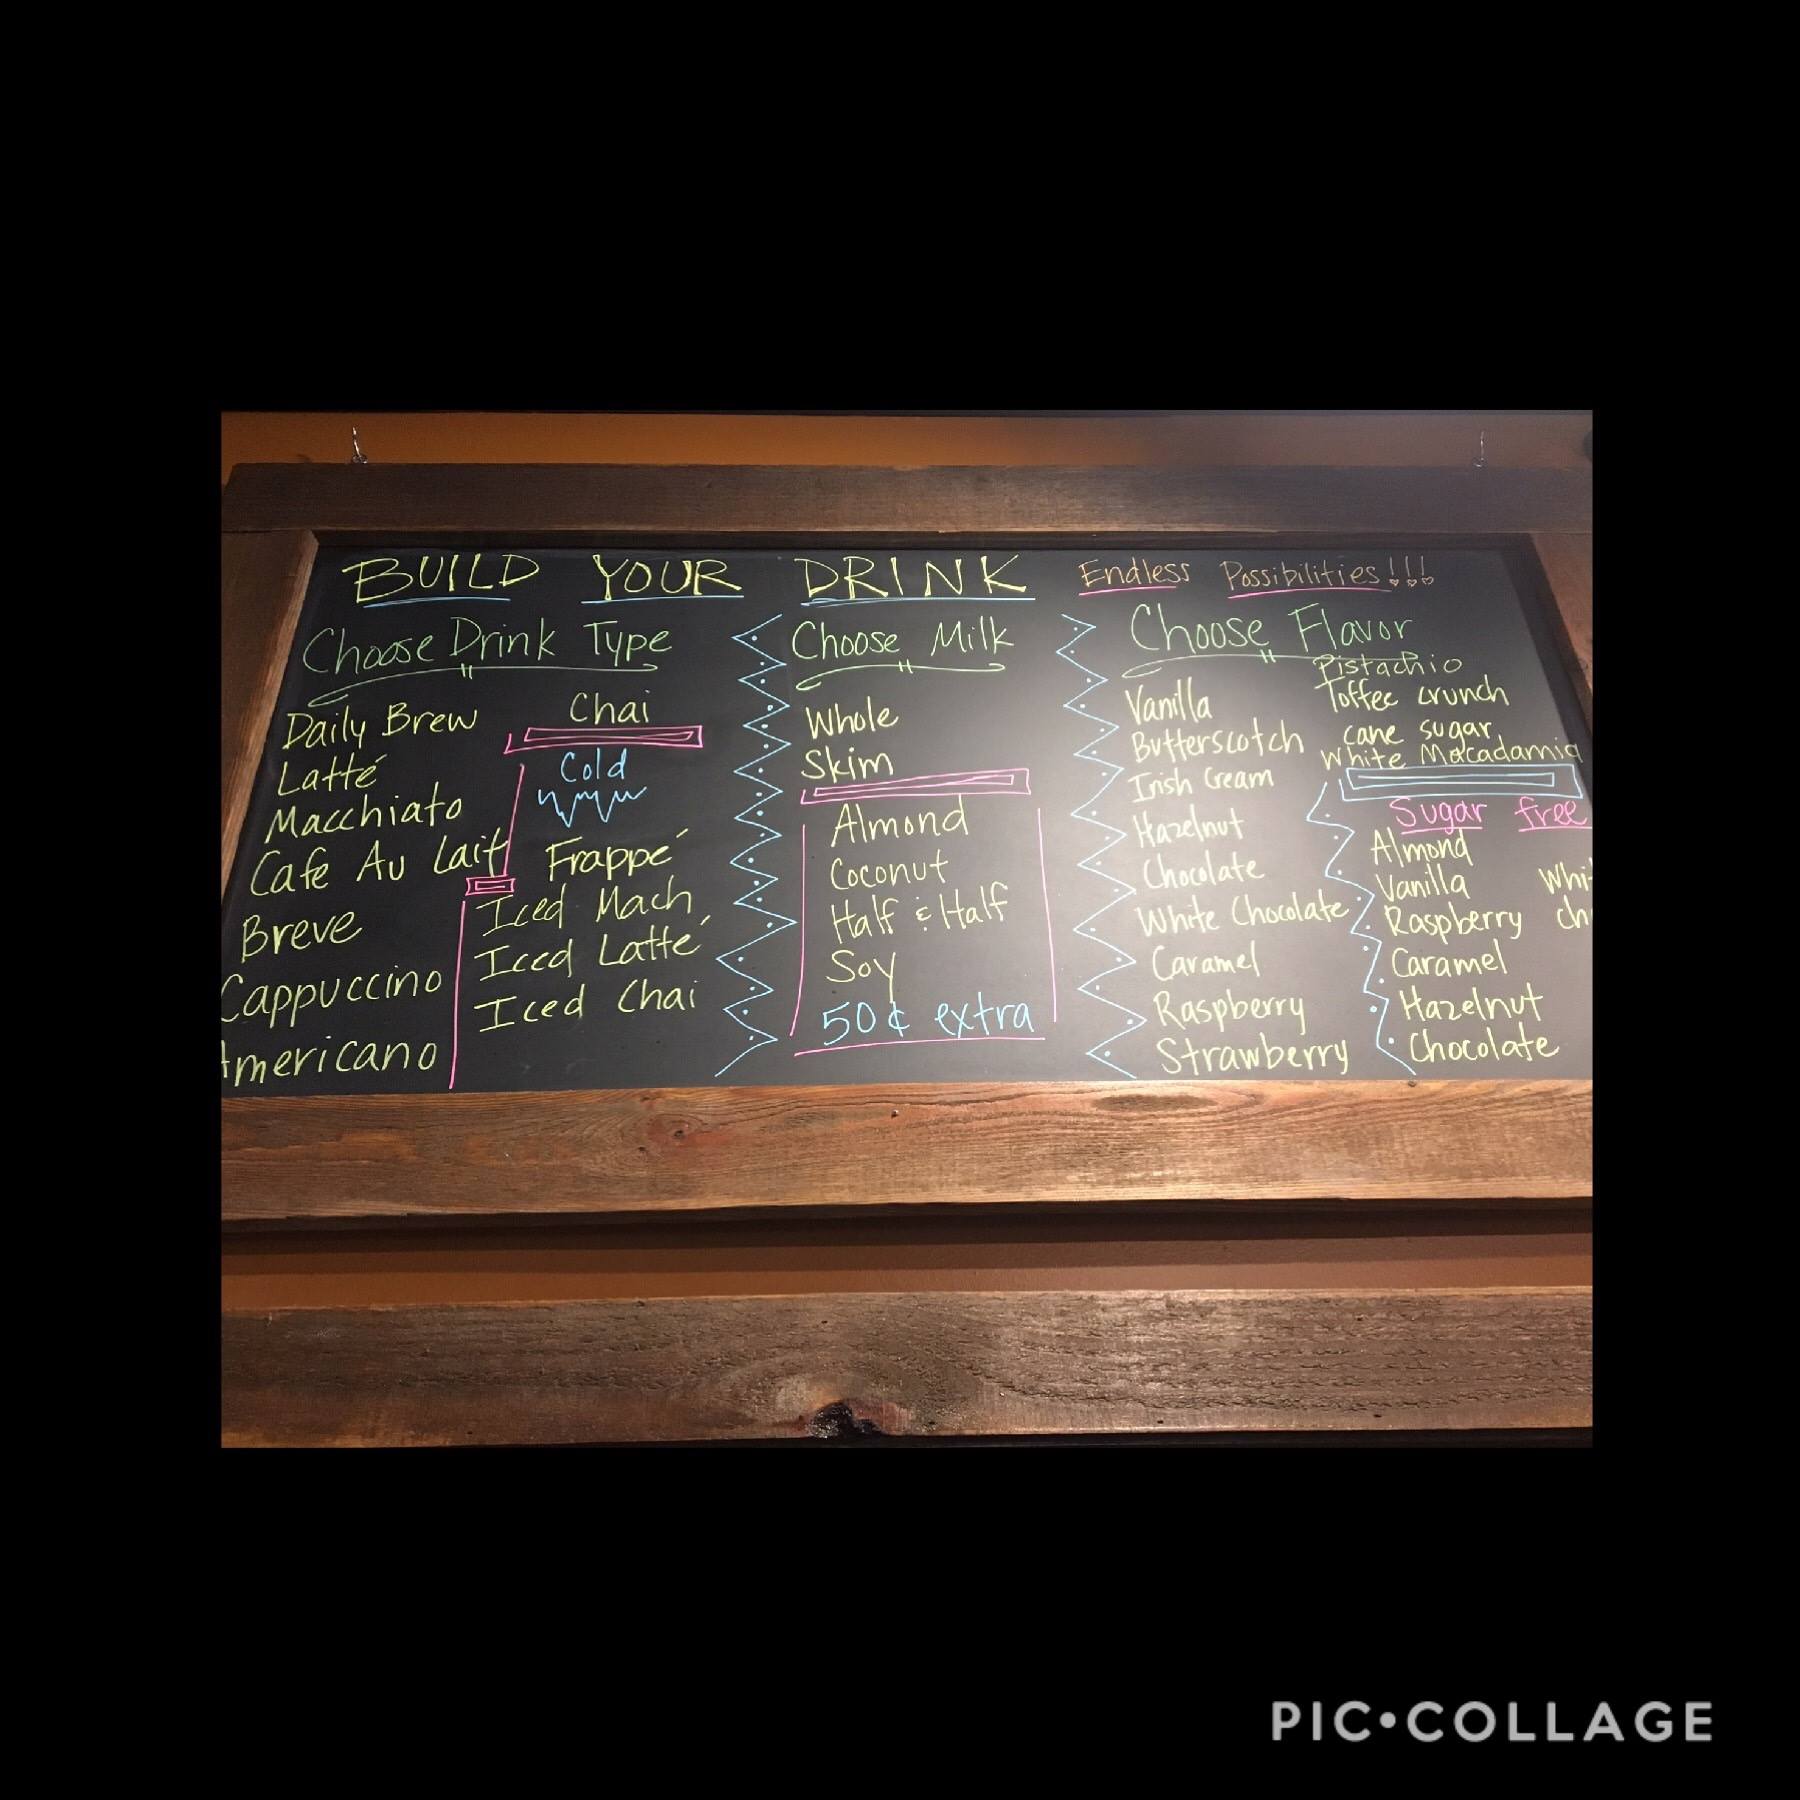 BUILD YOUR DRINK
Endless Possibilities!!!
Choose Drink Type
Daily Brew
Latté
Macchiato
Cafe Au Lait
Breve
Cappuccino
Americano
Chai
Cold
Frappé
Iced Mach
Iced Latté
Iced Chai
Choose Milk
Whole
Skim
Almond
Coconut
Half & Half
Soy
50¢ extra
Choose Flavor
Vanilla
Butterscotch
Irish Cream
Hazelnut
Chocolate
White Chocolate
Caramel
Raspberry
Strawberry
Pistachio
Toffee crunch
cane sugar
White Macadamia
Sugar free
Almond
Vanilla
Raspberry
Caramel
Hazelnut
Chocolate
PIC•COLLAGE